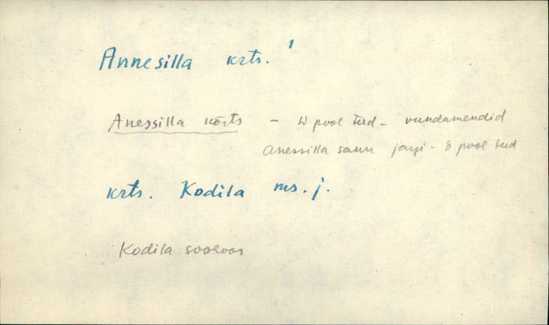 Annesilla krts. 1
Anessilla kõrts - W pool teed - vundamendid
Anessilla saun järgi - E pool teed
krts. Kodila ms. j.
Kodila soosoos